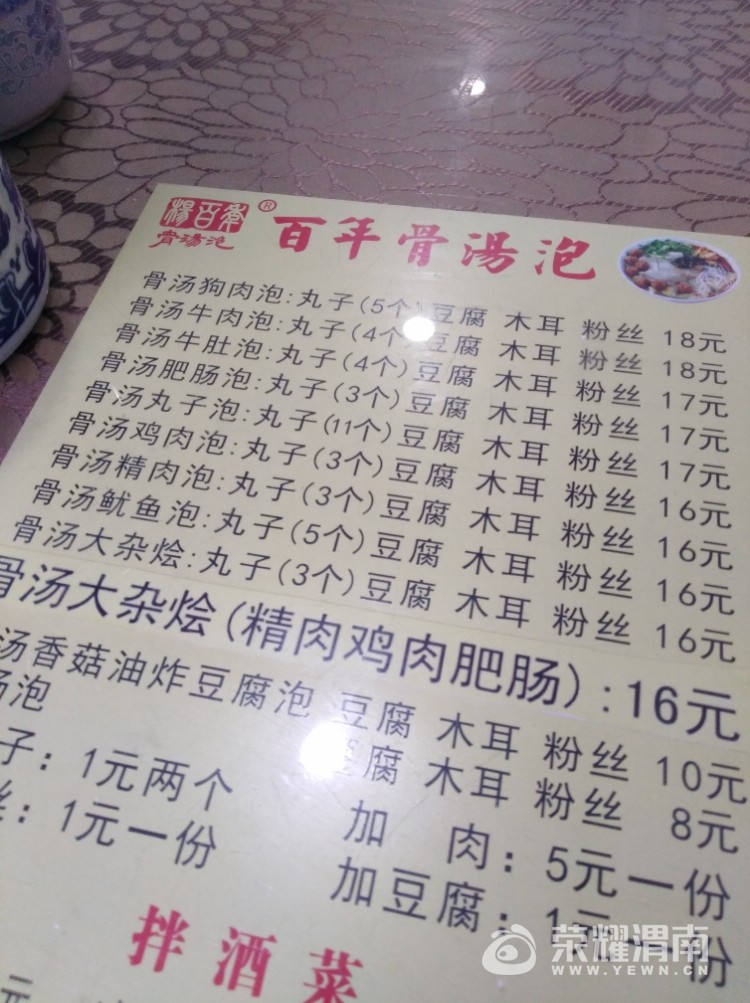 楊百年®
骨湯泡
百年骨湯泡
骨汤狗肉泡:丸子(5个)豆腐 木耳 粉丝 18元
骨汤牛肉泡:丸子(4个)豆腐 木耳 粉丝 18元
骨汤牛肚泡:丸子(4个)豆腐 木耳 粉丝 17元
骨汤肥肠泡:丸子(3个)豆腐 木耳 粉丝 17元
骨汤丸子泡:丸子(11个)豆腐 木耳 粉丝 17元
骨汤鸡肉泡:丸子(3个)豆腐 木耳 粉丝 16元
骨汤精肉泡:丸子(3个)豆腐 木耳 粉丝 16元
骨汤鱿鱼泡:丸子(5个)豆腐 木耳 粉丝 16元
骨汤大杂烩:丸子(3个)豆腐 木耳 粉丝 16元
骨汤大杂烩(精肉鸡肉肥肠):16元
汤香菇油炸豆腐泡 豆腐 木耳 粉丝 10元
汤泡 豆腐 木耳 粉丝 8元
子:1元两个 加 肉:5元一份
丝:1元一份 加豆腐:1元一份
拌酒菜
元
荣耀渭南
WWW.YEWN.CN